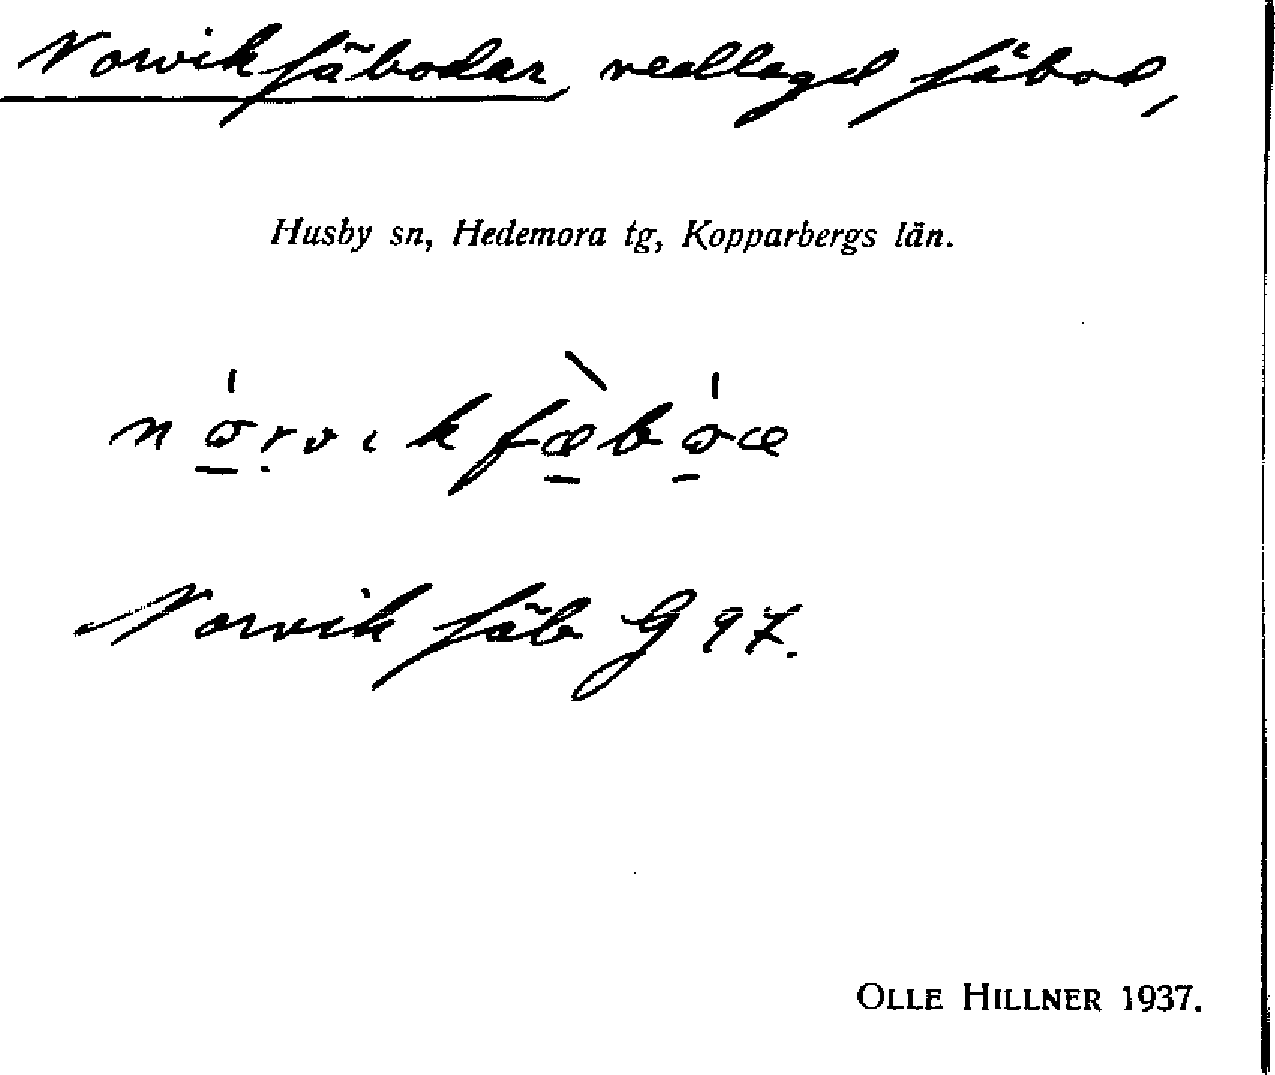 Norvikfäbodar, nedlagd fäbod,
Husby sn, Hedemora tg, Kopparbergs län.
Norvik fäb G 97.
OLLE HILLNER 1937.